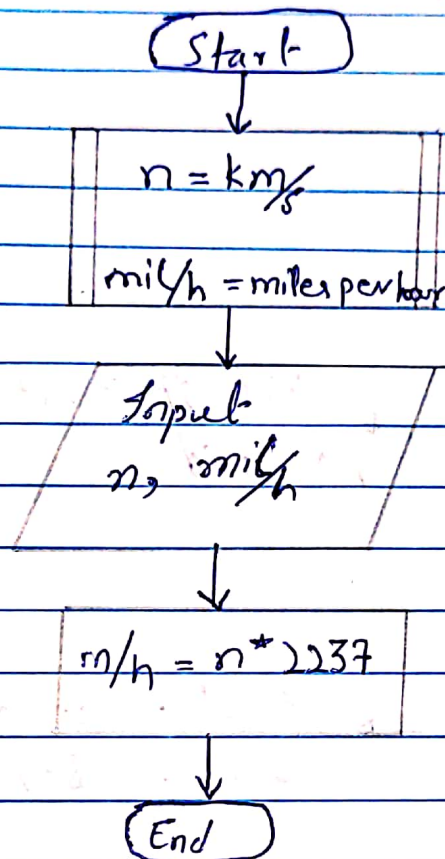 Start
n = km/s
mil/h = miles per hour
Input
n, mil/h
m/h = n * 2237
End